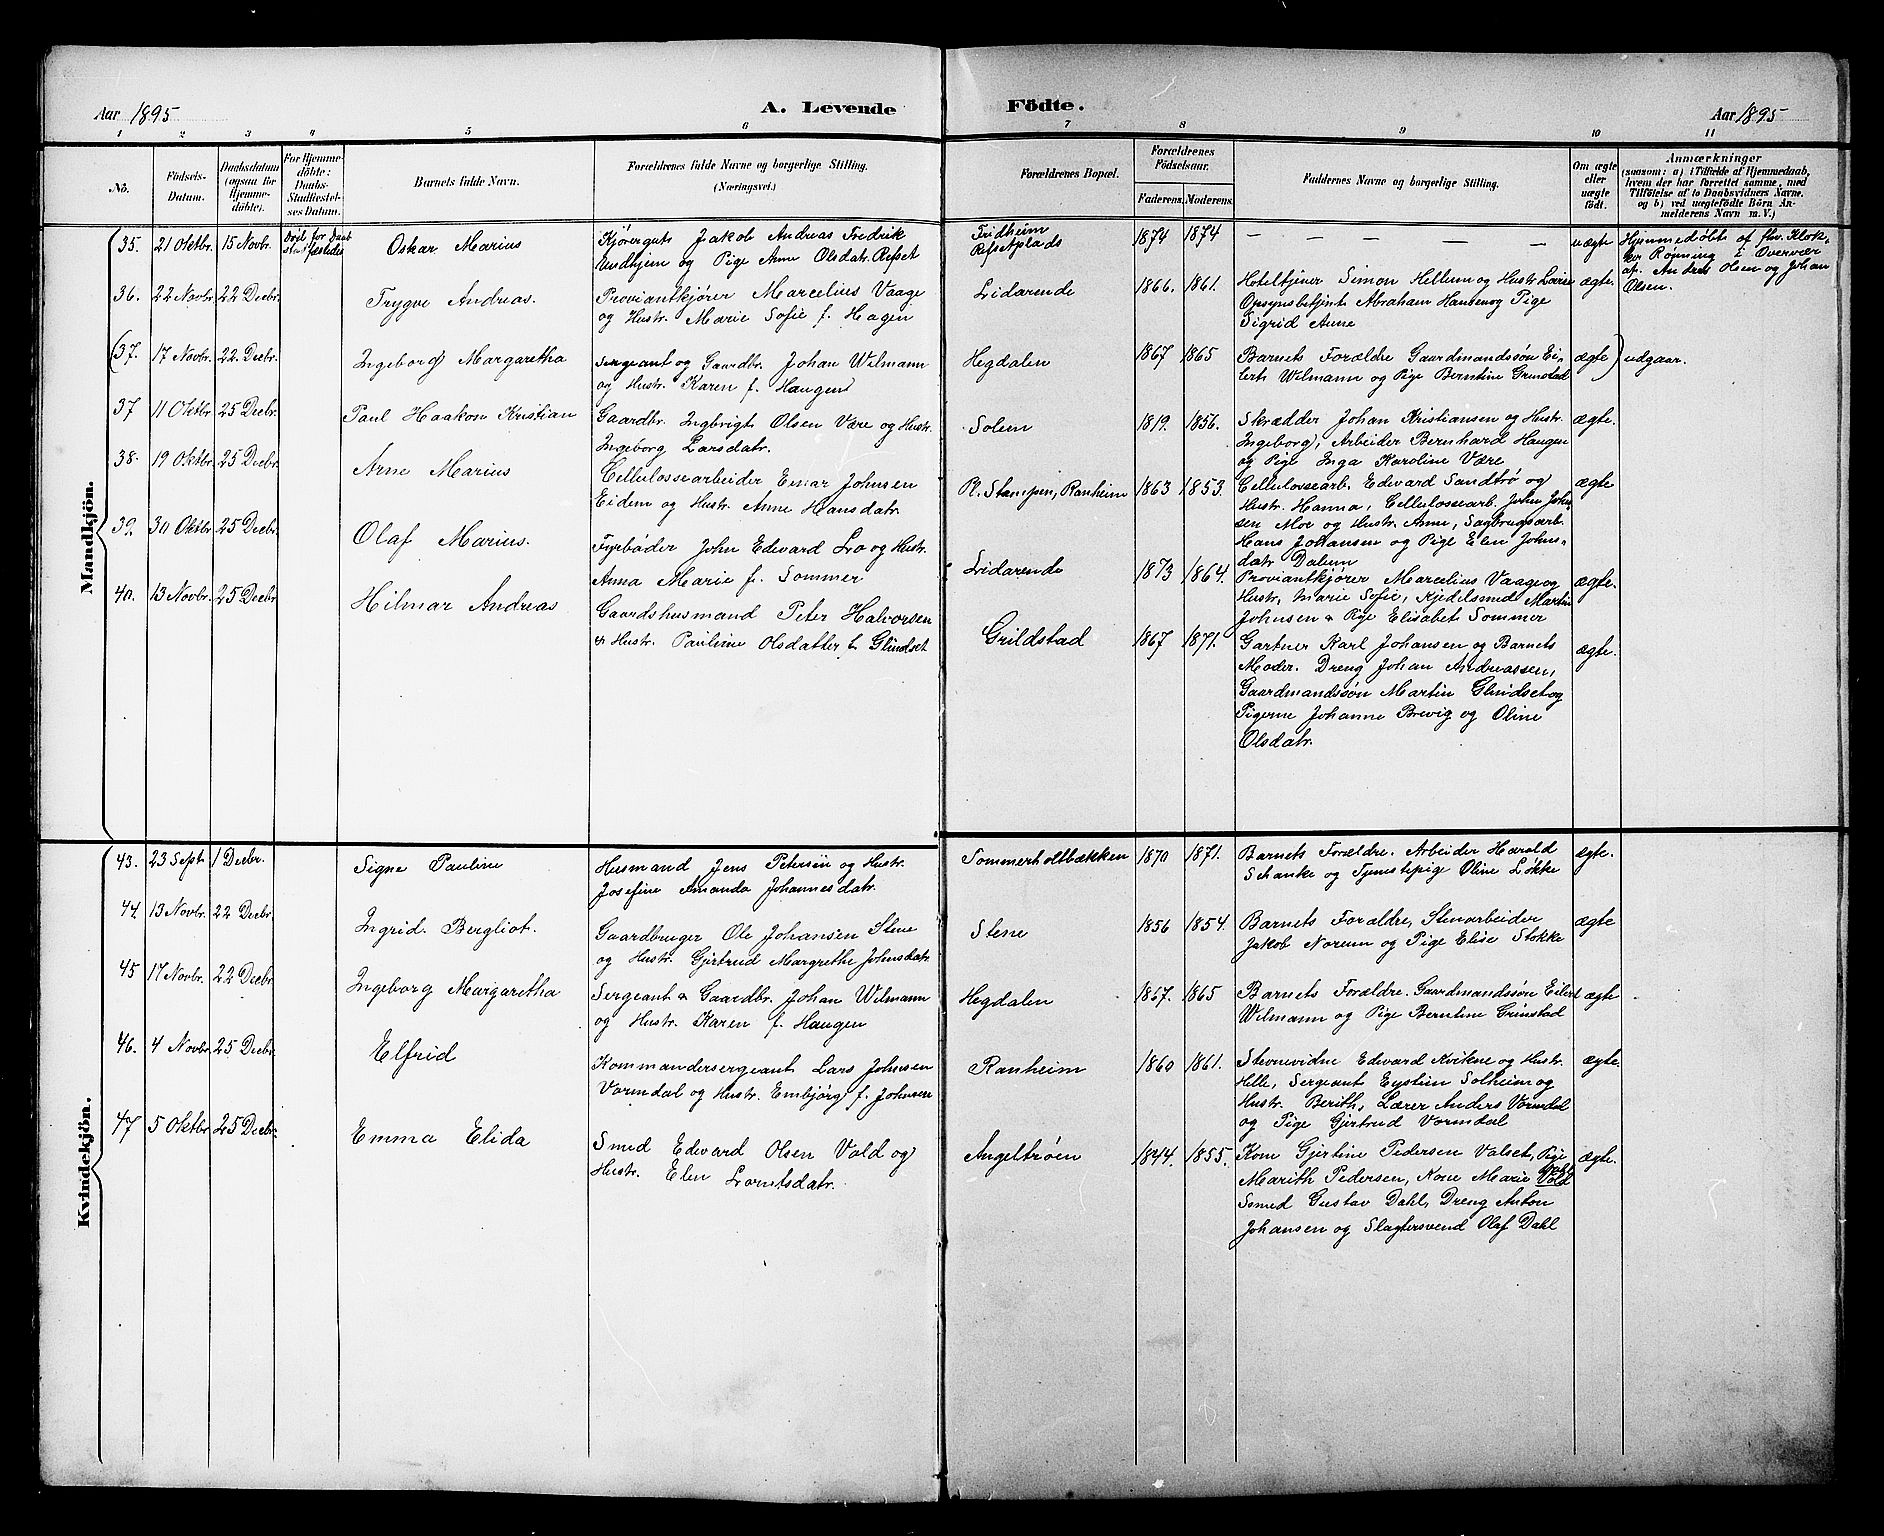 Aar 1895
A. Levende
Födte.
Aar 1895
1 2 3 4 5 6 7 8 9 10 11
No.
Födsels-
Datum.
Daabsdatum
(ogsaa for
Hjemme-
döbte).
For Hjemme-
döbte:
Daabs-
Stadfæstel-
ses Datum.
Barnets fulde Navn.
Forældrenes fulde Navne og borgerlige Stilling.
(Næringsvei.)
Forældrenes Bopæl.
Forældrenes
Födselsaar.
Faderens. Moderens.
Faddernes Navne og borgerlige Stilling.
Om ægte
eller
uægte
födt.
Anmærkninger
(saasom: a) i Tilfælde af Hjemmedaab,
hvem der har forrettet samme, med
Tilföielse af to Daabsvidners Navne.
og b) ved uægtefödte Börn An-
melderens Navn m. V.)
Mandkjön.
35. 21 Oktbr. 15 Novbr. Död for Daab
stadfæstedes
Oskar Marius
Kjøregut Jakob Andreas Fredrik
Lundhjem og Pige Anne Olsdatr. Refset
Fridheim
Refsetplads
1874 1874
— — — — — —
uægte
Hjemmedøbt af fhv. Klok-
ker Rønning i Overvær
af Anders Olsen og Johan
Olsen.
36. 22 Novbr. 22 Decbr.
Trygve Andreas.
Proviantkjører Marcelius Vaage
og Hustr. Marie Sofie f. Hagen
Lidarende
1866. 1861.
Hoteltjener Simon Hellem og Hustr. Lovise
Opsynsbetjent Abraham Hansen og Pige
Sigrid Aune
ægte.
(37. 17 Novbr. 22 Decbr.
Ingeborg Margaretha
Sergeant og Gaardbr. Johan Wilmann
og Hustr. Karen f. Haugen
Hegdalen
1867 1865
Barnets Forældre Gaardmandssøn Ei-
lert Wilmann og Pige Berntine Grinstad
ægte) udgaar.
37. 11 Oktbr. 25 Decbr.
Paul Haakon Kristian
Gaardbr. Ingbrigt Olsen Være og Hustr.
Ingeborg Larsdatr.
Solem
1819. 1856.
Skrædder Johan Kristiansen og Hustr.
Ingeborg, Arbeider Bernhard Haugen
og Pige Inga Karoline Være
ægte.
38. 19 Oktbr. 25 Decbr.
Arne Marius
Cellulossearbeider Einar Johnsen
Eidem og Hustr. Anne Hansdatr.
Pl. Stampen, Ranheim
1863 1853.
Cellulossearb. Edvard Sandtrø og
Hustr. Hanna, Cellulossearb. John John-
sen Moe og Hustr. Anne, Sagbrugsarb.
Hans Johansen og Pige Elen Johns-
datr Dalum
ægte
39. 30 Oktbr. 25 Decbr.
Olaf Marius.
Fyrbøder John Edvard Lo og Hustr.
Anna Marie f. Sommer
Lidarende
1873 1864.
Proviantkjører Marcelius Vaage og
Hustr. Marie Sofie, Kjedelsmed Martin
Johnsen & Pige Elisabet Sommer
ægte.
40. 13 Novbr. 25 Decbr
Hilmar Andreas
Gaardshusmand Peter Halvorsen
& Hustr. Pauline Olsdatter f. Glindset
Grildstad
1867 1871.
Gartner Karl Johansen og Barnets
Moder. Dreng Johan Andreassen,
Gaardmandssøn Martin Glindset og
Pigerne Johanne Brevig og Oline
Olsdatr.
ægte.
Kvindekjön.
43. 23 Sept. 1 Decbr.
Signe Pauline
Husmand Jens Petersen og Hustr.
Josefine Amanda Johannesdatr.
Sommerholtbækken
1870 1871.
Barnets Forældre. Arbeider Harald
Schanke og Tjenestepige Oline Løkke
ægte.
44. 13 Novbr. 22 Decbr.
Ingrid Bergliot.
Gaardbruger Ole Johansen Stene
og Hustr. Gjertrud Margrethe Johnsdatr.
Stene
1856 1854.
Barnets Forældre, Stenarbeider
Jakob Norum og Pige Elise Stokke
ægte
45 17 Novbr. 22 Decbr.
Ingeborg Margaretha
Sergeant & Gaardbr. Johan Wilmann
og Hustr. Karen f. Haugen
Hegdalen
1867. 1865
Barnets Forældre. Gaardmandssøn Eilert
Wilmann og Pige Berntine Grinstad
ægte
46. 4 Novbr. 25 Decbr.
Elfrid
Kommandersergeant Lars Johnsen
Vormdal og Hustr. Embjørg f. Johnsen
Ranheim
1860 1861.
Stevnevidne Edvard Kvikne og Hustr.
Helle, Sergeant Eystein Solheim og
Hustr. Berith, Lærer Anders Vormdal
og Pige Gjertrud Vormdal
ægte.
47 5 Oktbr. 25 Decbr.
Emma Elida
Smed Edvard Olsen Vold og
Hustr. Elen Lorntsdatr.
Angeltrøen
1844. 1855.
Kone Gjertine Pedersen Valset, Pige
Marith Pedersen, Kone Marie Vold
Smed Gustav Dahl, Dreng Anton
Johansen og Slagtersvend Olaf Dahl
ægte.